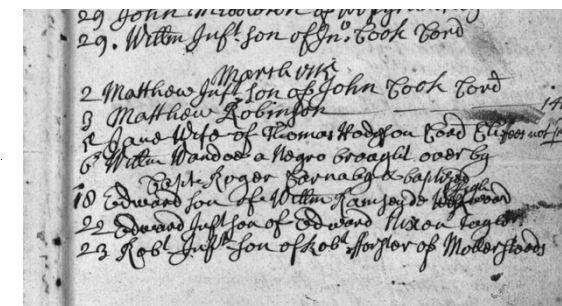 29 John Middleton of
29. Willm Inft son of Jno. Cook Cord
March
2 Matthew Inft son of John Cook Cord
3 Matthew Robinson
5 Jane Wife of Thomas Hodgson Cord
6 Willm Wandoe a Negro brought over by
Capt. Roger Carnaby & baptized
18 Edward son of Willm Ramsey de
22 Edward Inft son of Edward Nixon Taylor
23 Robt Inft son of Robt fforster of Mollersteads